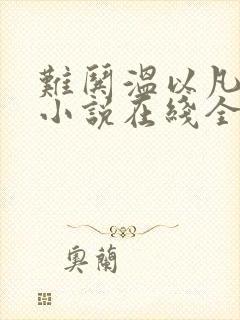 難鬨溫以凡
小說在綫全
奧蘭